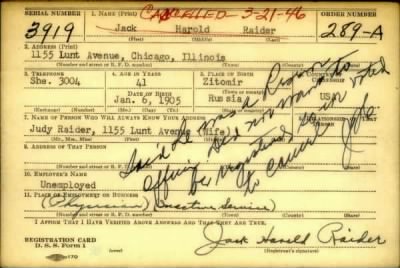 SERIAL NUMBER
1. NAME (Print)
CANCELLED 3-21-46
ORDER NUMBER
3919
Jack Harold Raider
289-A
(First) (Middle) (Last)
2. ADDRESS (Print)
1155 Lunt Avenue, Chicago, Illinois
(Number and street or R. F. D. number) (Town) (County) (State)
3. TELEPHONE
4. AGE IN YEARS
5. PLACE OF BIRTH
6. COUNTRY OF
She. 3004
41
Zitomir
DATE OF BIRTH
(Town or county)
USA
Jan. 6, 1905
Russia
(Exchange) (Number)
(Mo.) (Day) (Yr.)
(State or country)
7. NAME OF PERSON WHO WILL ALWAYS KNOW YOUR ADDRESS
Judy Raider, 1155 Lunt Avenue (Wife)
(Mr., Mrs., Miss) (First) (Middle) (Last)
8. RELATIONSHIP OF THAT PERSON
9. ADDRESS OF THAT PERSON
(Number and street or R. F. D. number) (Town) (County) (State)
Said he was a Reserve
officer. Did not want to
be registered. voted
to cancel
10. EMPLOYER'S NAME
Unemployed
11. PLACE OF EMPLOYMENT OR BUSINESS
(Physician) (Inactive Service)
(Number and street or R. F. D. number) (Town) (County) (State)
I AFFIRM THAT I HAVE VERIFIED ABOVE ANSWERS AND THAT THEY ARE TRUE.
REGISTRATION CARD
D. S. S. Form 1
Jack Harold Raider
(Registrant's signature)